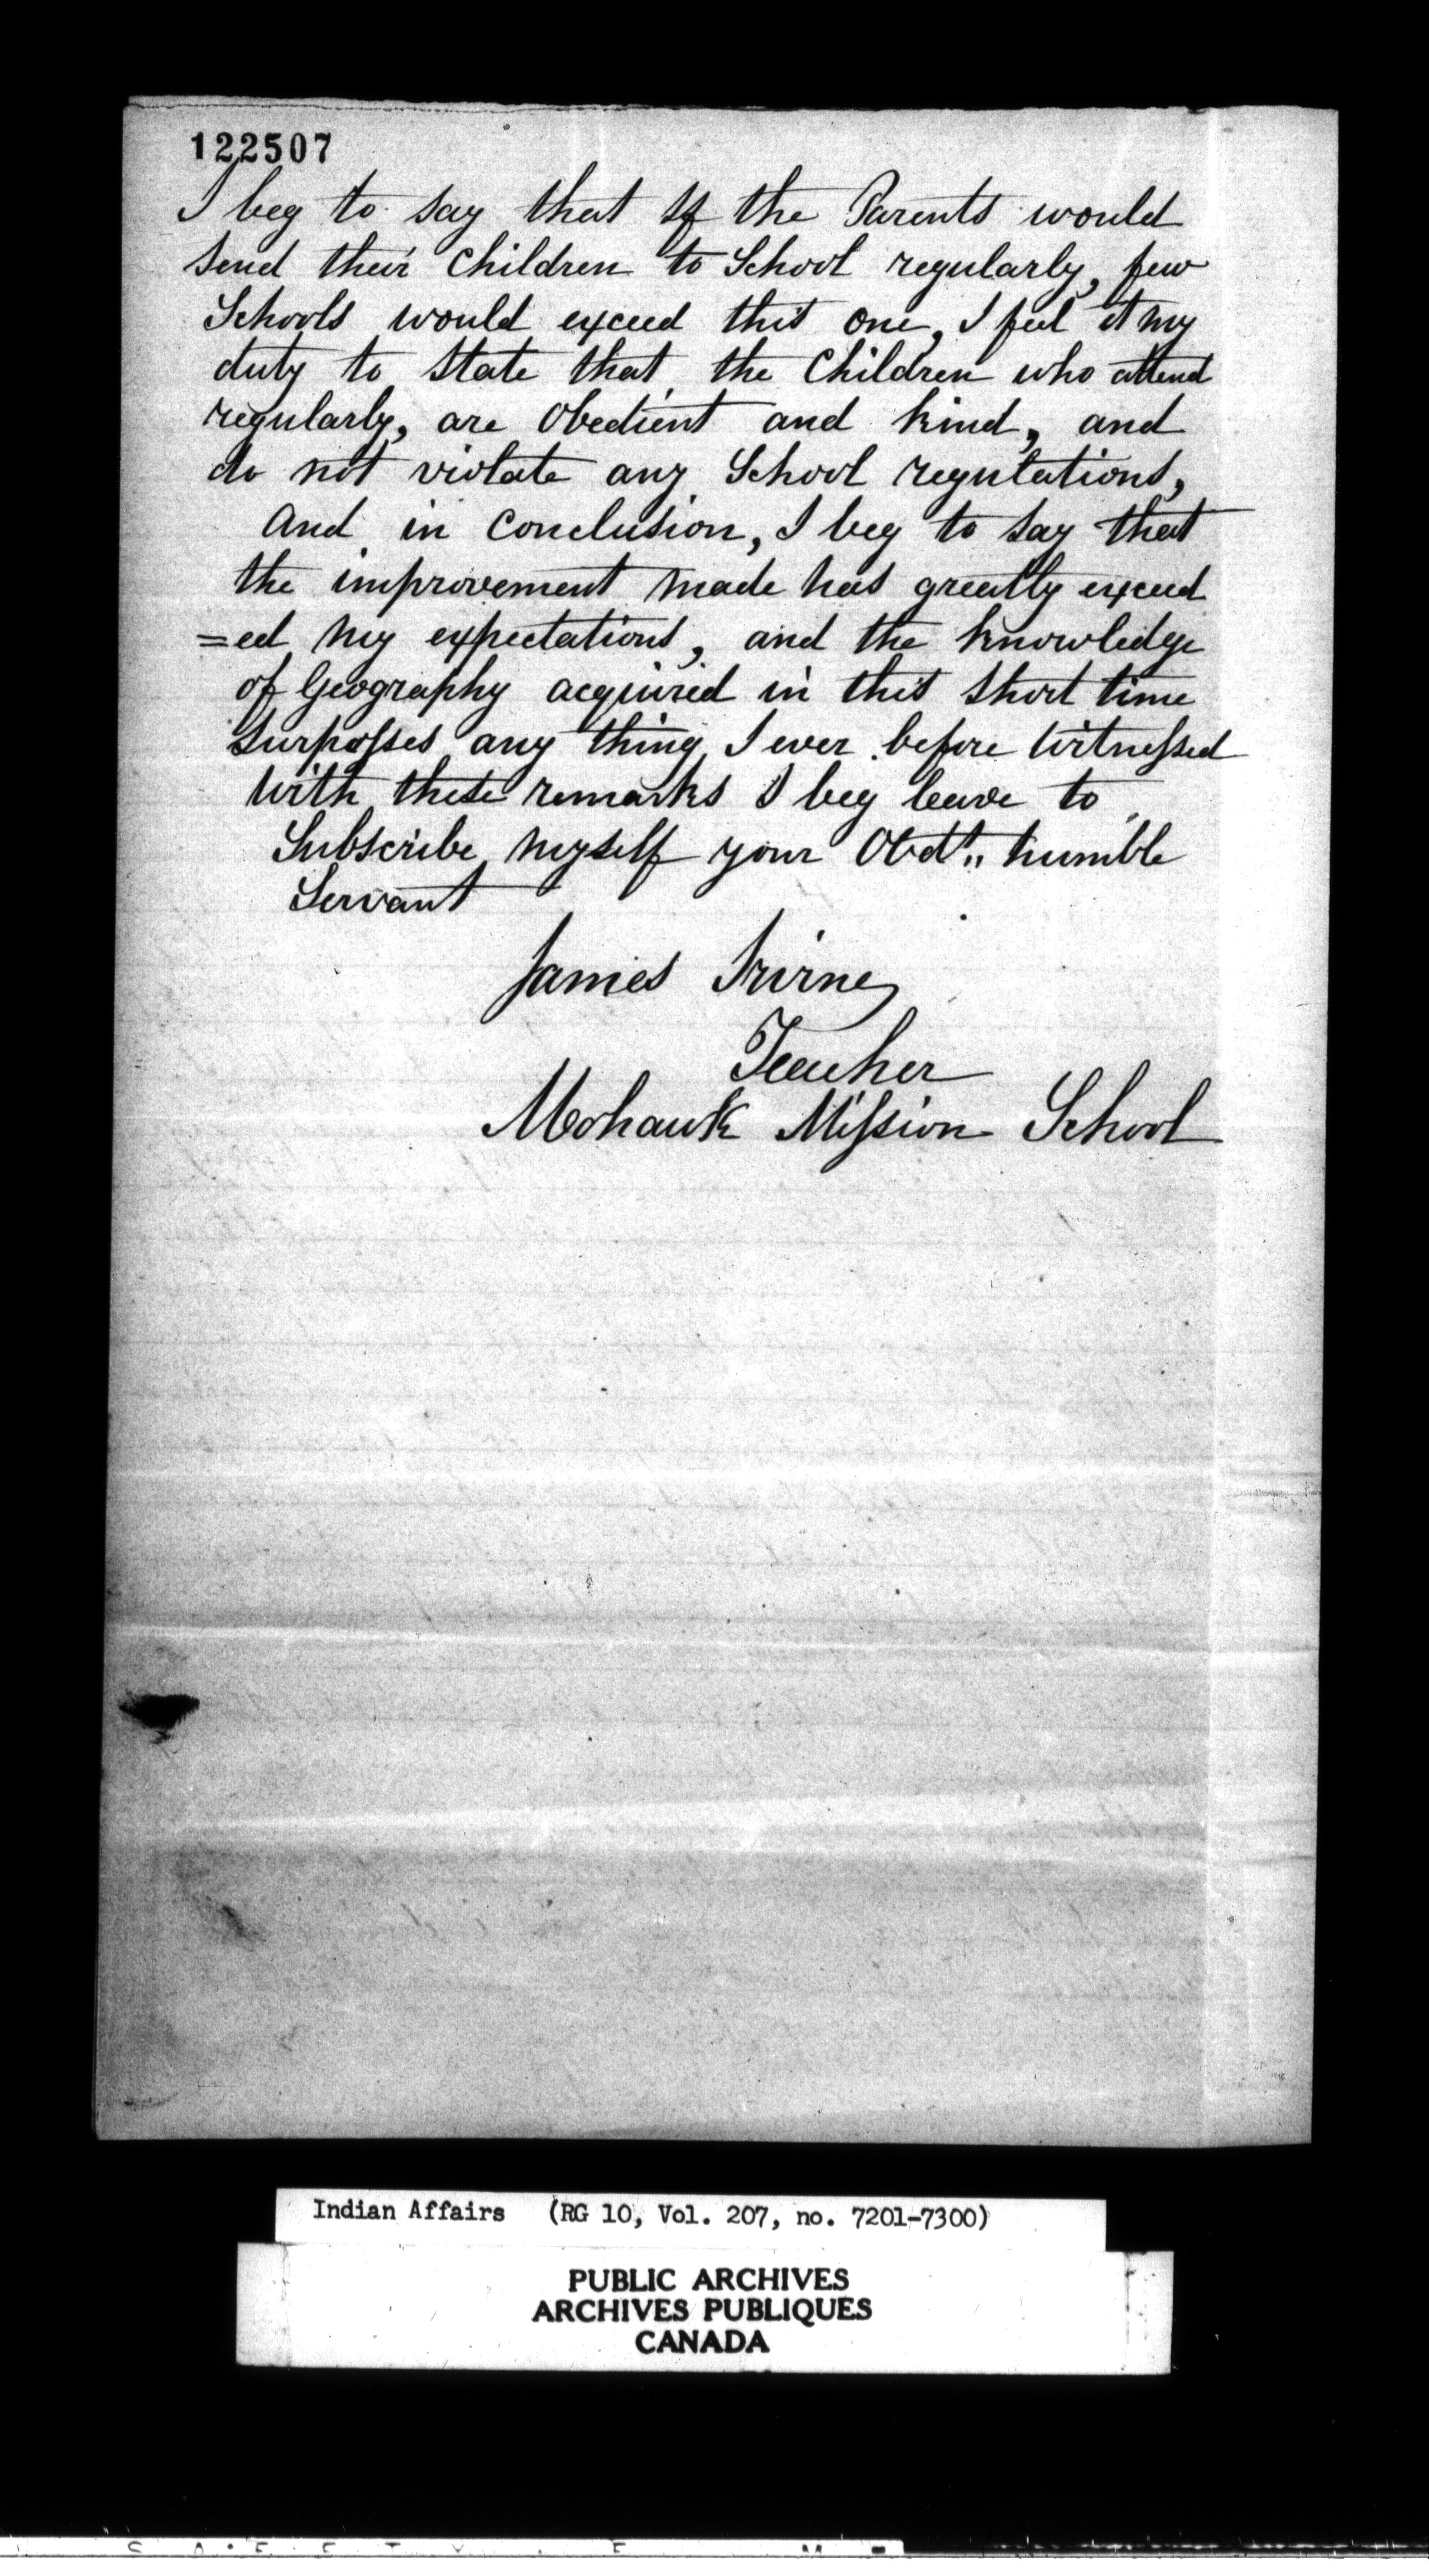 122507
I beg to say that If the Parents would
send their Children to School regularly, few
Schools would exceed this one, I feel it my
duty to state that the Children who attend
regularly, are Obedient and kind, and
do not violate any School regulations,
And in Conclusion, I beg to say that
the improvement made has greatly exceed
=ed my expectations, and the knowledge
of Geography acquired in this short time
Surpasses any thing I ever before Witnessed
With these remarks I beg leave to
Subscribe myself your Obdt,, humble
Servant
James Irvine
Teacher
Mohawk Mission School
Indian Affairs (RG 10, Vol. 207, no. 7201-7300)
PUBLIC ARCHIVES
ARCHIVES PUBLIQUES
CANADA